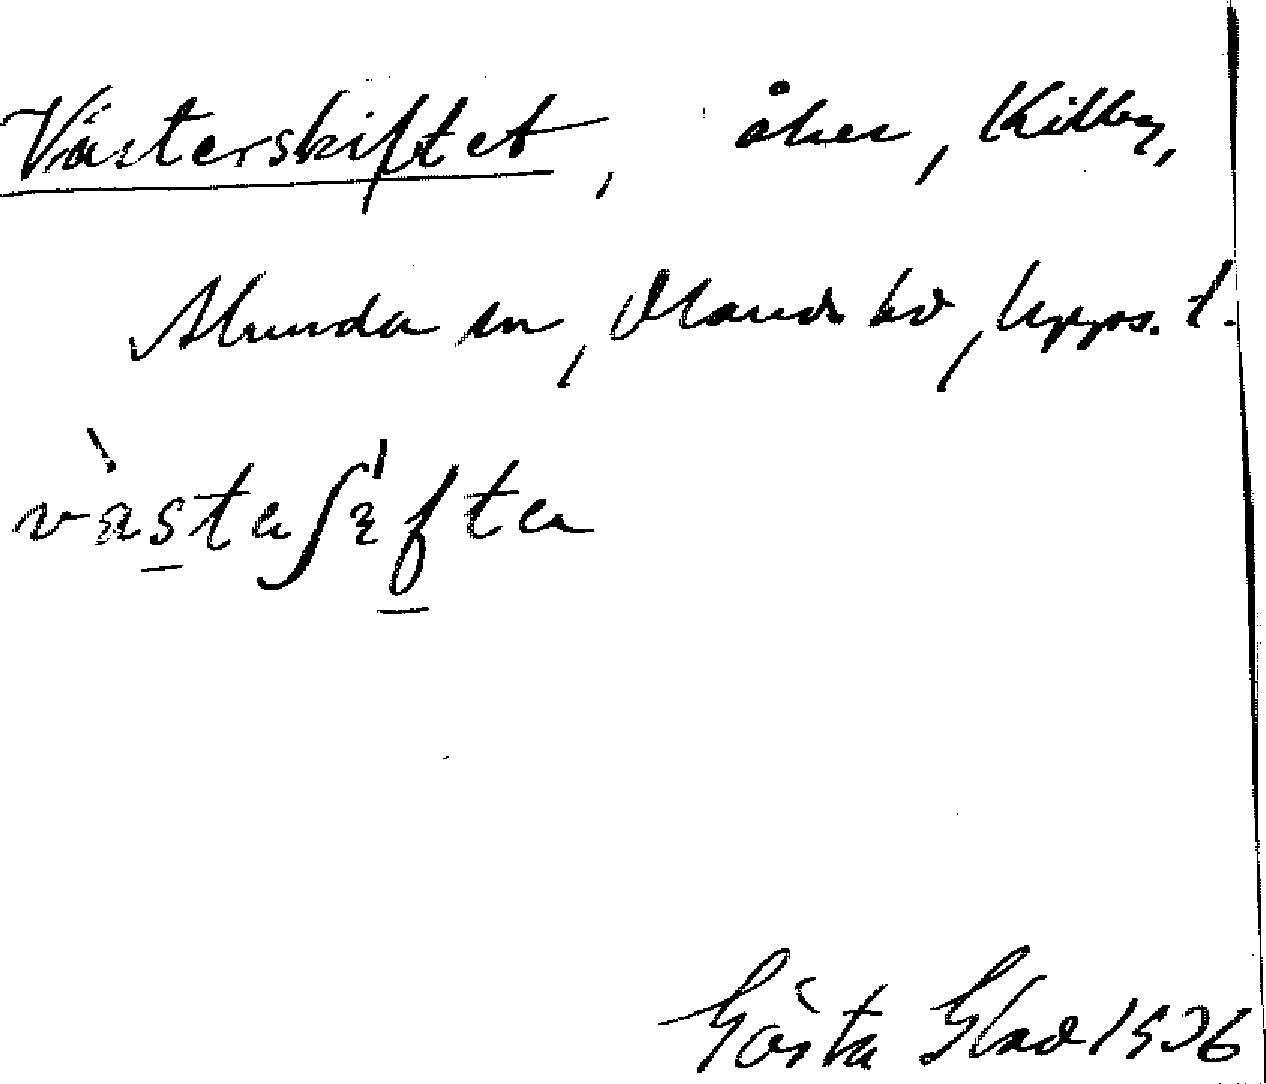 Västerskiftet, åker, Killby,
Alunda sn, Olands hd, Upps. l.
västaʃɛften
Gösta Glad 1936